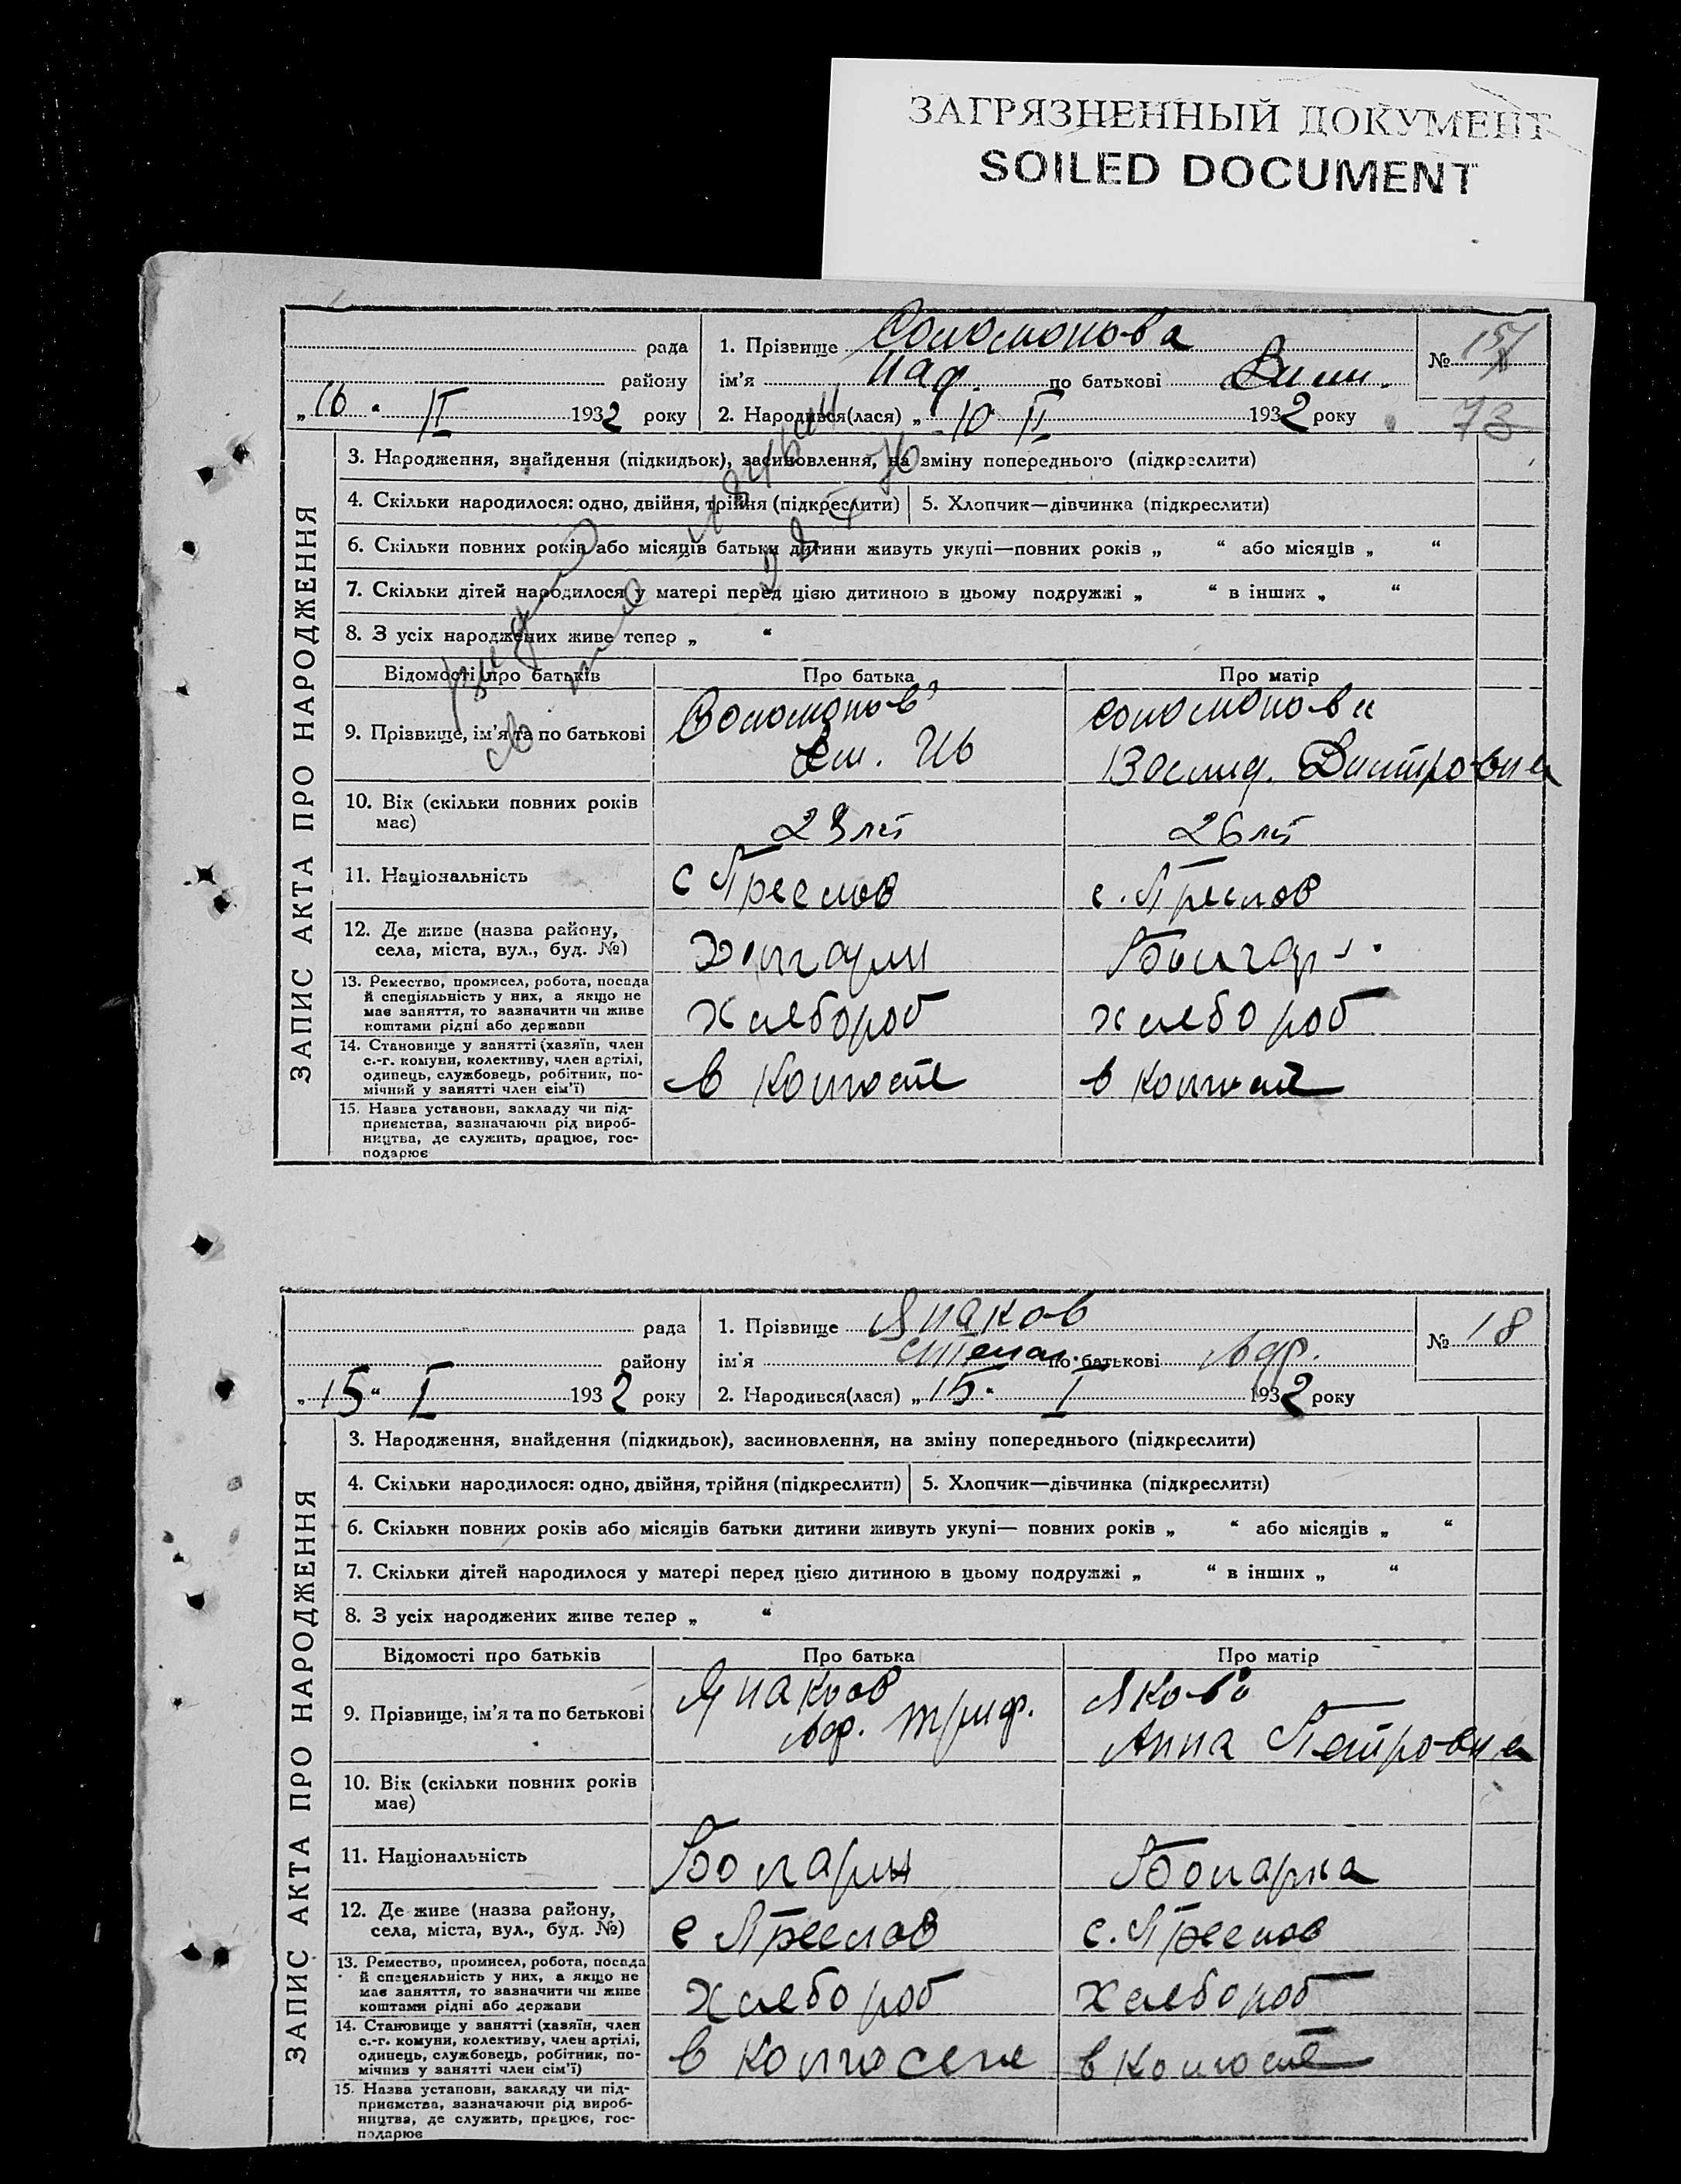 ЗАГРЯЗНЕННЫЙ ДОКУМЕНТ
SOILED DOCUMENT
рада
району
„16“ II 1932 року
1. Прізвище Соломонова
ім’я Над. по батькові
2. Народився(лася) „10 II 1932 року
№
73
ЗАПИС АКТА ПРО НАРОДЖЕННЯ
3. Народження, знайдення (підкидьок), засиновлення, на зміну попереднього (підкреслити)
4. Скільки народилося: одно, двійня, трійня (підкреслити) 5. Хлопчик—дівчинка (підкреслити)
6. Скільки повних років або місяців батьки дитини живуть укупі—повних років „ “ або місяців „ “
7. Скільки дітей народилося у матері перед цією дитиною в цьому подружжі „ “ в інших „ “
8. З усіх народжених живе тепер „ “
Відомості про батьків Про батька Про матір
9. Прізвище, ім’я та по батькові
Соломонов
Соломонова
Дмитровна
10. Вік (скільки повних років
має)
23 лет
26 лет
11. Національність
с Преслав
с. Преслав
12. Де живе (назва району,
села, міста, вул., буд. №)
Болгар
13. Ремество, промисел, робота, посада
й спеціяльність у них, а якщо не
має заняття, то зазначити чи живе
коштами рідні або держави
хлебороб
хлебороб
14. Становище у занятті (хазяїн, член
с.-г. комуни, колективу, член артілі,
одинець, службовець, робітник, по-
мічний у занятті член сім’ї)
в колгоспе
в колгоспе
15. Назва установи, закладу чи під-
приємства, зазначаючи рід вироб-
ництва, де служить, працює, гос-
подарює
рада
району
„15“ I 1932 року
1. Прізвище Янаков
ім’я Степан. по батькові
2. Народився(лася) „15“ I 1932 року
№ 18
ЗАПИС АКТА ПРО НАРОДЖЕННЯ
3. Народження, знайдення (підкидьок), засиновлення, на зміну попереднього (підкреслити)
4. Скільки народилося: одно, двійня, трійня (підкреслити) 5. Хлопчик—дівчинка (підкреслити)
6. Скільки повних років або місяців батьки дитини живуть укупі— повних років „ “ або місяців „ “
7. Скільки дітей народилося у матері перед цією дитиною в цьому подружжі „ “ в інших „ “
8. З усіх народжених живе тепер „ “
Відомості про батьків Про батька Про матір
9. Прізвище, ім’я та по батькові
Янаков
Триф.
Анна Петровна
10. Вік (скільки повних років
має)
11. Національність
Болгарин
Болгарка
12. Де живе (назва району,
села, міста, вул., буд. №)
с Преслав
с. Преслав
13. Ремество, промисел, робота, посада
й спецеяльність у них, а якщо не
має заняття, то зазначити чи живе
коштами рідні або держави
хлебороб
хлебороб
14. Становище у занятті (хазяїн, член
с.-г. комуни, колективу, член артілі,
одинець, службовець, робітник, по-
мічник у занятті член сім’ї)
в колгоспе
в колгоспе
15. Назва установи, закладу чи під-
приємства, зазначаючи рід вироб-
ництва, де служить, працює, гос-
подарює